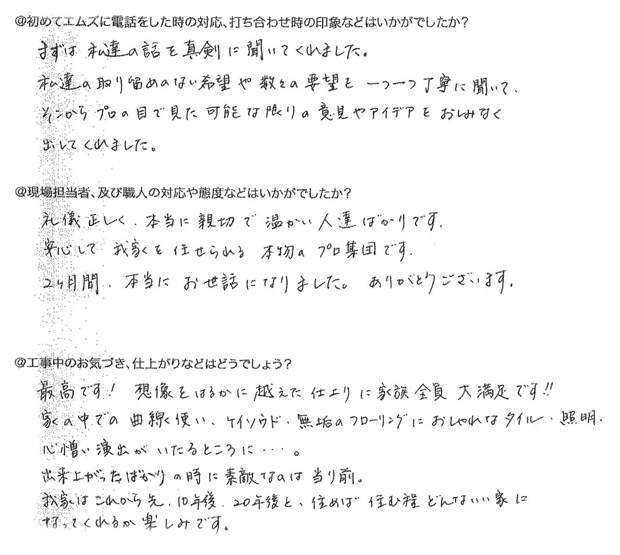 @初めてエムズに電話をした時の対応、打ち合わせ時の印象などはいかがでしたか?
まずは私達の話を真剣に聞いてくれました。
私達の取り留めのない希望や数々の要望を一つ一つ丁寧に聞いて、
そこからプロの目で見た可能な限りの意見やアイデアをおしみなく
出してくれました。
@現場担当者、及び職人の対応や態度などはいかがでしたか?
礼儀正しく、本当に親切で温かい人達ばかりです。
安心して我家を任せられる本物のプロ集団です。
2ヶ月間、本当にお世話になりました。ありがとうございます。
@工事中のお気づき、仕上がりなどはどうでしょう?
最高です! 想像をはるかに越えた仕上りに家族全員大満足です!!
家の中での曲線使い、ケイソウド・無垢のフローリングにおしゃれなタイル・照明、
心憎い演出がいたるところに・・・。
出来上がったばかりの時に素敵なのは当り前。
我家はこれから先、10年後、20年後と、住めば住む程どんないい家に
なってくれるか楽しみです。